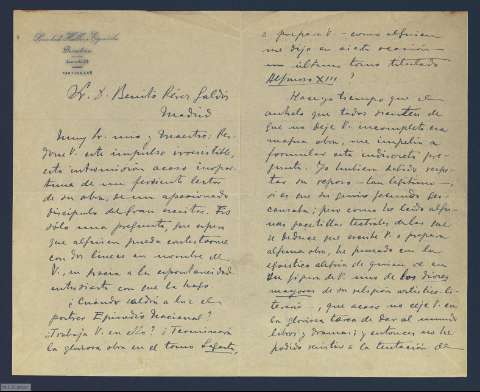 Sr. D. Benito Pérez Galdós
Madrid
Muy Sr. mío y Maestro: Per-
done V. este impulso irresistible,
esta intromisión acaso inopor-
tuna de un ferviente lector
de su obra, de un apasionado
discípulo del gran escritor. Es
sólo una pregunta, que espero
que alguien pueda contestarme
con dos líneas en nombre de
V., en gracia a la espontaneidad
entusiasta con que la hago.
¿Cuándo saldrá a luz el
postrer Episodio Nacional?
¿Trabaja V. en ello? ¿Terminará
la gloriosa obra en el tomo Sagasta,
o prepara V. —como alguien
me dijo en cierta ocasión—
un último tomo titulado
Alfonso XIII?
Hace ya tiempo que el
anhelo que todos sienten de
que no deje V. incompleta esa
magna obra, me impelía a
formular esta indiscreta pre-
gunta. Yo hubiera debido respe-
tar su reposo —tan legítimo—,
si es que su genio fecundo des-
cansaba; pero como he leído algu-
nas gacetillas teatrales, de las que
se deduce que escribe V. o prepara
alguna obra, he pensado con la
egoística alegría de quien ve en
la figura de V. uno de los dioses
mayores de su religión artístico-li-
teraria, que acaso no deje V. en
la gloriosa tarea de dar al mundo
libros y dramas; y entonces no he
podido resistir a la tentación de